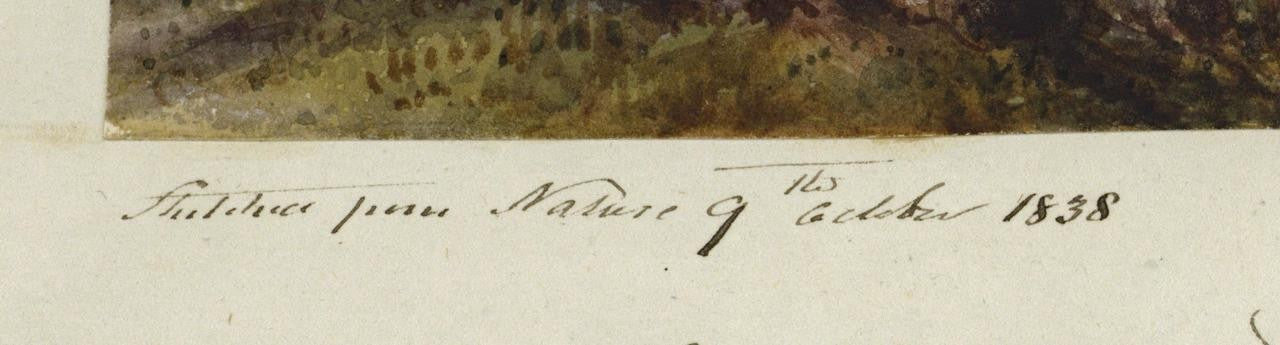 Sketched from Nature 9th October 1838